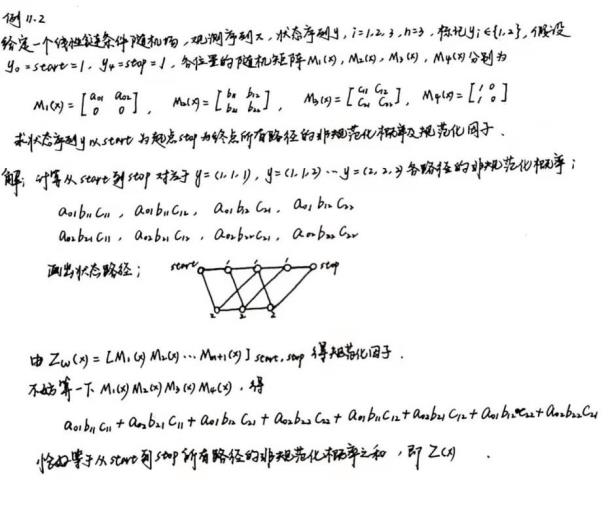 例 11.2
给定一个线性链条件随机场，观测序列x，状态序列y，i=1,2,3，n=3，标记yᵢ∈{1,2}，假设
y₀=start=1，y₄=stop=1，各位置的随机矩阵M₁(x)，M₂(x)，M₃(x)，M₄(x)分别为
M₁(x)=[a₀₁ a₀₂; 0 0]，M₂(x)=[b₁₁ b₁₂; b₂₁ b₂₂]，M₃(x)=[c₁₁ c₁₂; c₂₁ c₂₂]，M₄(x)=[1 0; 1 0]
求状态序列y以start为起点stop为终点所有路径的非规范化概率及规范化因子．
解：计算从start到stop对应于y=(1,1,1)，y=(1,1,2)…y=(2,2,2)各路径的非规范化概率；
a₀₁b₁₁c₁₁，a₀₁b₁₁c₁₂，a₀₁b₁₂c₂₁，a₀₁b₁₂c₂₂
a₀₂b₂₁c₁₁，a₀₂b₂₁c₁₂，a₀₂b₂₂c₂₁，a₀₂b₂₂c₂₂
画出状态路径；
start 1 1 1 stop
2 2 2
由 Z_w(x)=[M₁(x)M₂(x)…Mₙ₊₁(x)]start,stop 得规范化因子．
不妨算一下M₁(x)M₂(x)M₃(x)M₄(x)，得
a₀₁b₁₁c₁₁+a₀₂b₂₁c₁₁+a₀₁b₁₂c₂₁+a₀₂b₂₂c₂₂+a₀₁b₁₁c₁₂+a₀₂b₂₁c₁₂+a₀₁b₁₂c₂₂+a₀₂b₂₂c₂₁
恰好等于从start到stop所有路径的非规范化概率之和，即Z(x)．